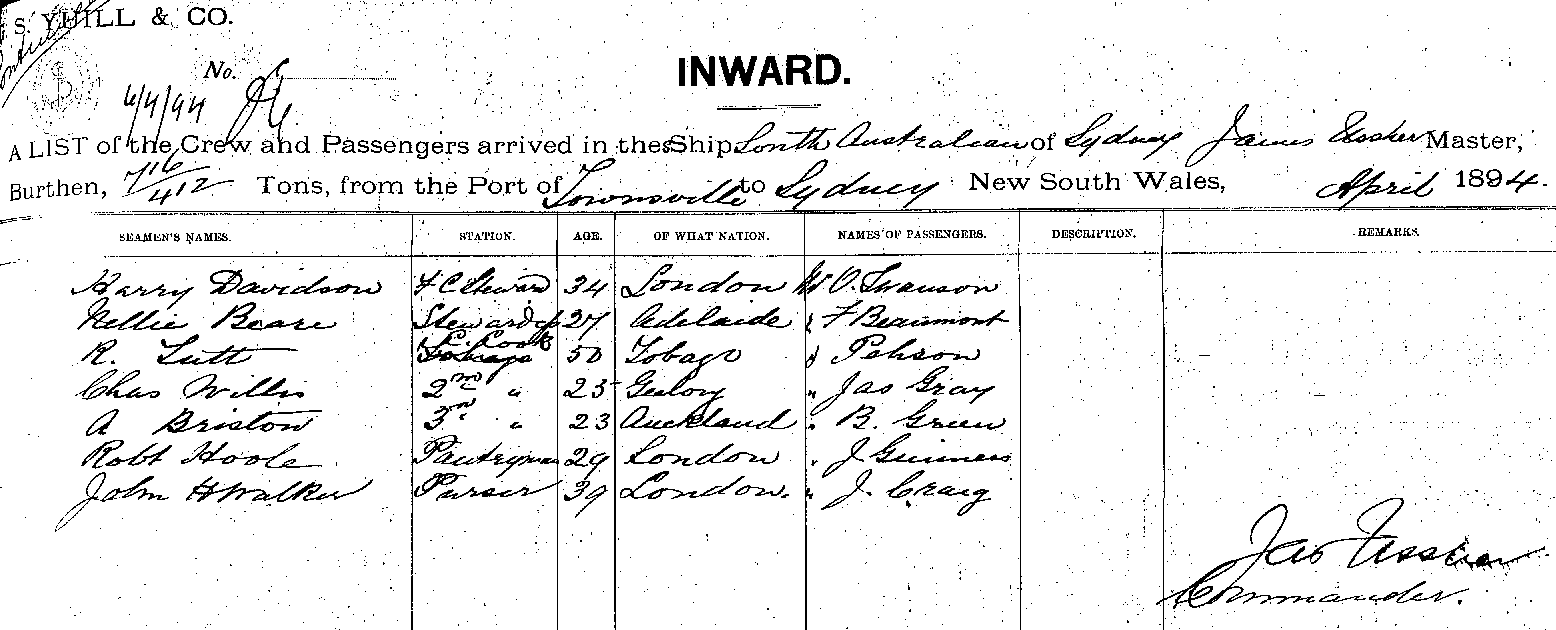 S. YHILL & CO.
No.
6/4/94
INWARD.
A LIST of the Crew and Passengers arrived in the SS Ship South Australian of Sydney James Ussher Master,
Burthen, 716/412 Tons, from the Port of Townsville to Sydney New South Wales, April 1894.
SEAMEN'S NAMES. STATION. AGE. OF WHAT NATION. NAMES OF PASSENGERS. DESCRIPTION. REMARKS.
Harry Davidson F C Steward 34 London Mr O. Swanson
Nellie Beare Stewardess 27 Adelaide " F Beaumont
R. Tutt S. Cook 50 Tobago " Pehson
Chas Willis 2nd " 25 Geelong " Jas Gray
A Briston 3rd " 23 Auckland " B. Green
Robt Hoole Pantryman 29 London " J Guinness
John H Walker Purser 39 London. " J. Craig
Jas Ussher
Commander.